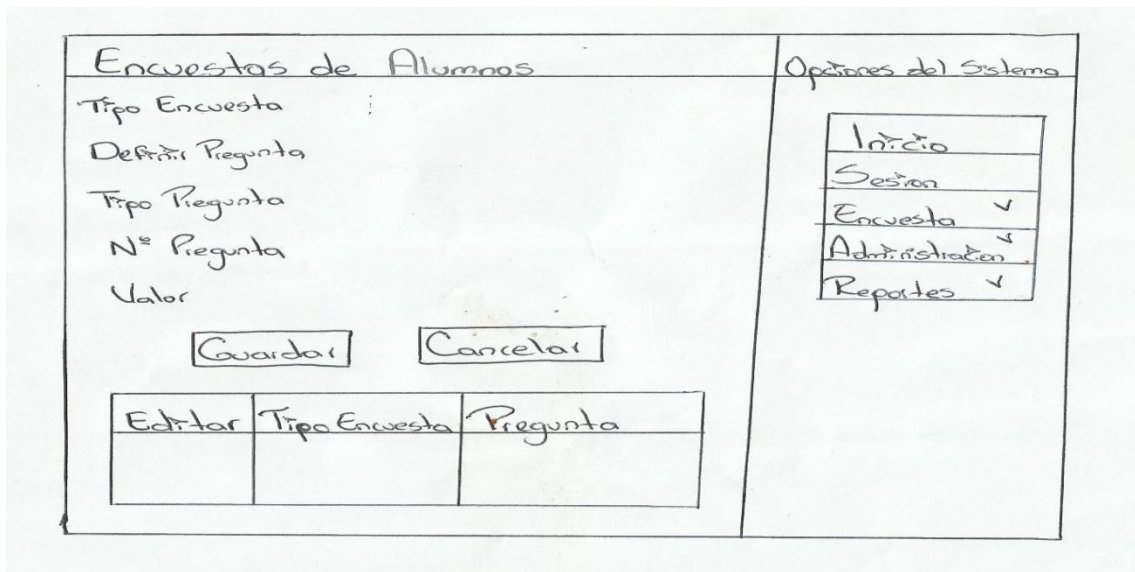 Encuestas de Alumnos
Tipo Encuesta
Definir Pregunta
Tipo Pregunta
N° Pregunta
Valor
Guardar Cancelar
Editar Tipo Encuesta Pregunta
Opciones del Sistema
Inicio
Sesion
Encuesta ✓
Administration ✓
Reportes ✓